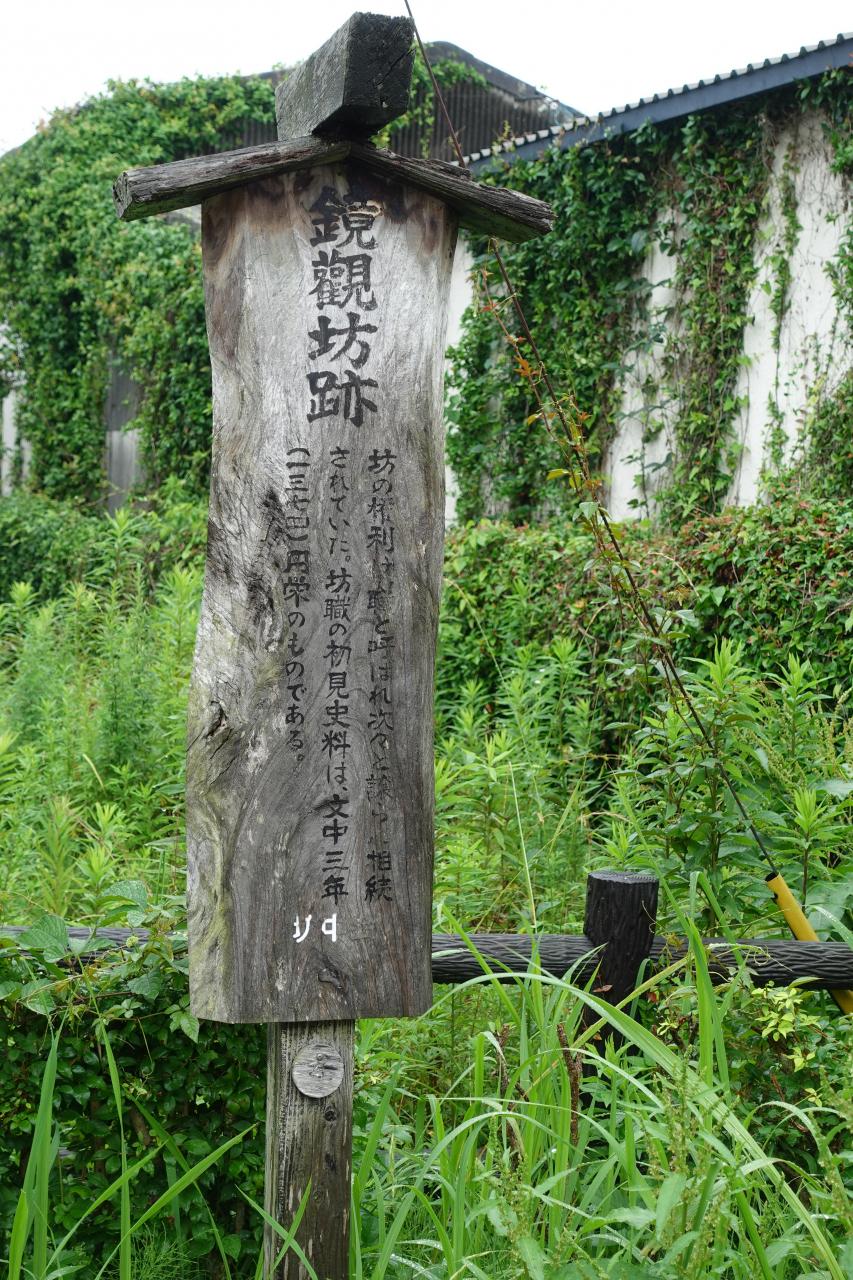 鏡觀坊跡
坊の権利は、職と呼ばれ次々と譲 相続
されていた。坊職の初見史料は、文中三年
(一三七四)円栄のものである。